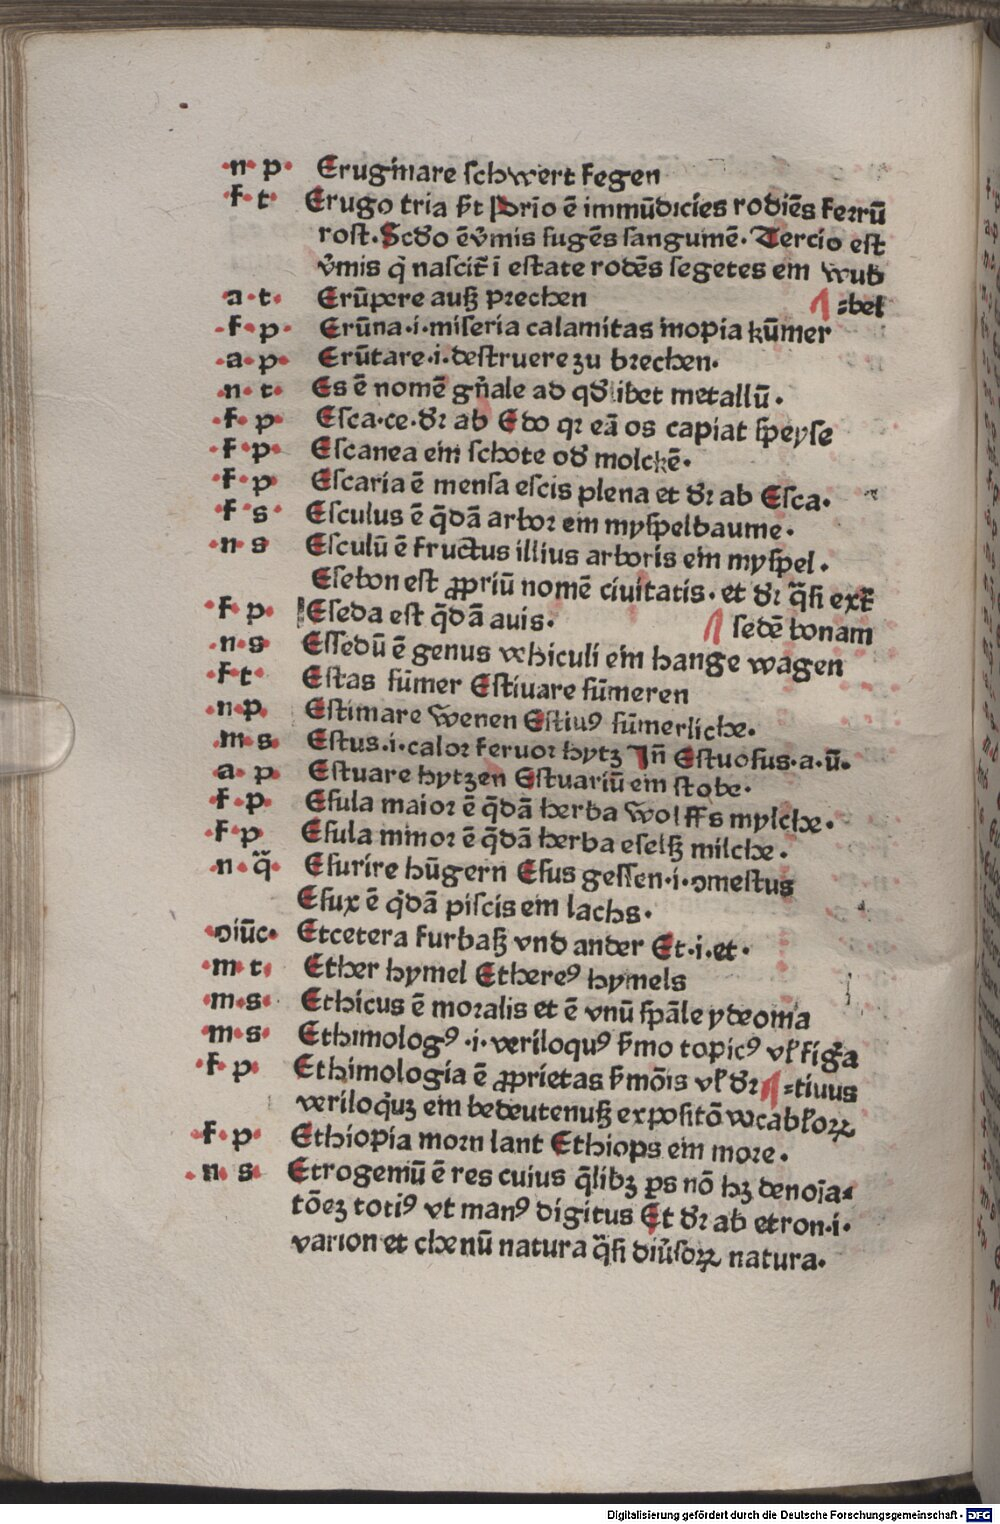 ·n· p· Eruginare ſchwert fegen
f· t· Erugo tria ſt Prīo ē immūdicies rodiēs ferrū
roſt· Scd̄o ēv̄mis ſugēs ſanguinē· Tercio eſt
v̄mis q̄ naſcit̄ ī eſtate rodēs ſegetes ein wub
a·t· Erūpere auſʒ prechen ⸗bel
·f·p· Erūna·i·miſeria calamitas inopia kūmer
·a·p· Erūtare·i·deſtruere zu brechen·
·n·t· Es ē nomē gn̄ale ad qd̄libet metallū·
·f·p· Eſca·ce·dr̄ ab Edo qꝛ eā os capiat ſpeyſe
·f·p· Eſcanea ein ſchote od̄ molckē·
·f·p· Eſcaria ē menſa eſcis plena et dr̄ ab Eſca·
·f·s· Eſculus ē q̄dā arboꝛ ein myſpelbaume·
·n·s Eſculū ē fructus illius arboris ein myſpel·
Eſebon eſt ꝓpriū nomē ciuitatis· et dr̄ q̄ſi ext̄
f·p· Eſeda eſt q̄dā auis· ſedē bonam
·n·s Eſſedū ē genus vehiculi ein hange wagen
·f·t· Eſtas ſūmer Eſtiuare ſūmeren
·n·p· Eſtimare wenen Eſtiuꝰ ſūmerliche·
·m·s· Eſtus·i·caloꝛ feruoꝛ hytz Jn̄ Eſtuoſus·a·ū·
a· p· Eſtuare hytzen Eſtuariū ein ſtobe·
·f·p· Eſula maioꝛ ē q̄dā herba wolffs mylche·
·f·p Eſula minoꝛ ē q̄dā herba eſelſʒ milche·
·n·q̄· Eſurire hūgern Eſus geſſen·i·ꝯmeſtus
Eſux ē q̄dā piſcis ein lachs·
·ꝯiūc· Etcetera furbaſʒ vnd ander Et·i·et·
·m t· Ether hymel Ethereꝰ hymels
·m·s· Ethicus ē moꝛalis et ē vnū ſpāle ydeoma
·m·s· Ethimologꝰ·i·veriloquꝰ ẜmo topicꝰ vl̄ figa
·f·p· Ethimologia ē ꝓprietas ẜmōis vl̄ dr̄ ⸗tiuus
veriloquʒ ein bedeutenuſʒ expoſitō vocabl̄oꝝ
·f·p· Ethiopia moꝛn lant Ethiops ein moꝛe·
·n·s· Etrogemū ē res cuius q̄libʒ ꝑs nō hʒ denoīa⸗
tōeʒ totiꝰ vt manꝰ digitus Et dr̄ ab etron·i·
varion et chenū natura q̄ſi diūſoꝝ natura·
Digitalisierung gefördert durch die Deutsche Forschungsgemeinschaft - DFG